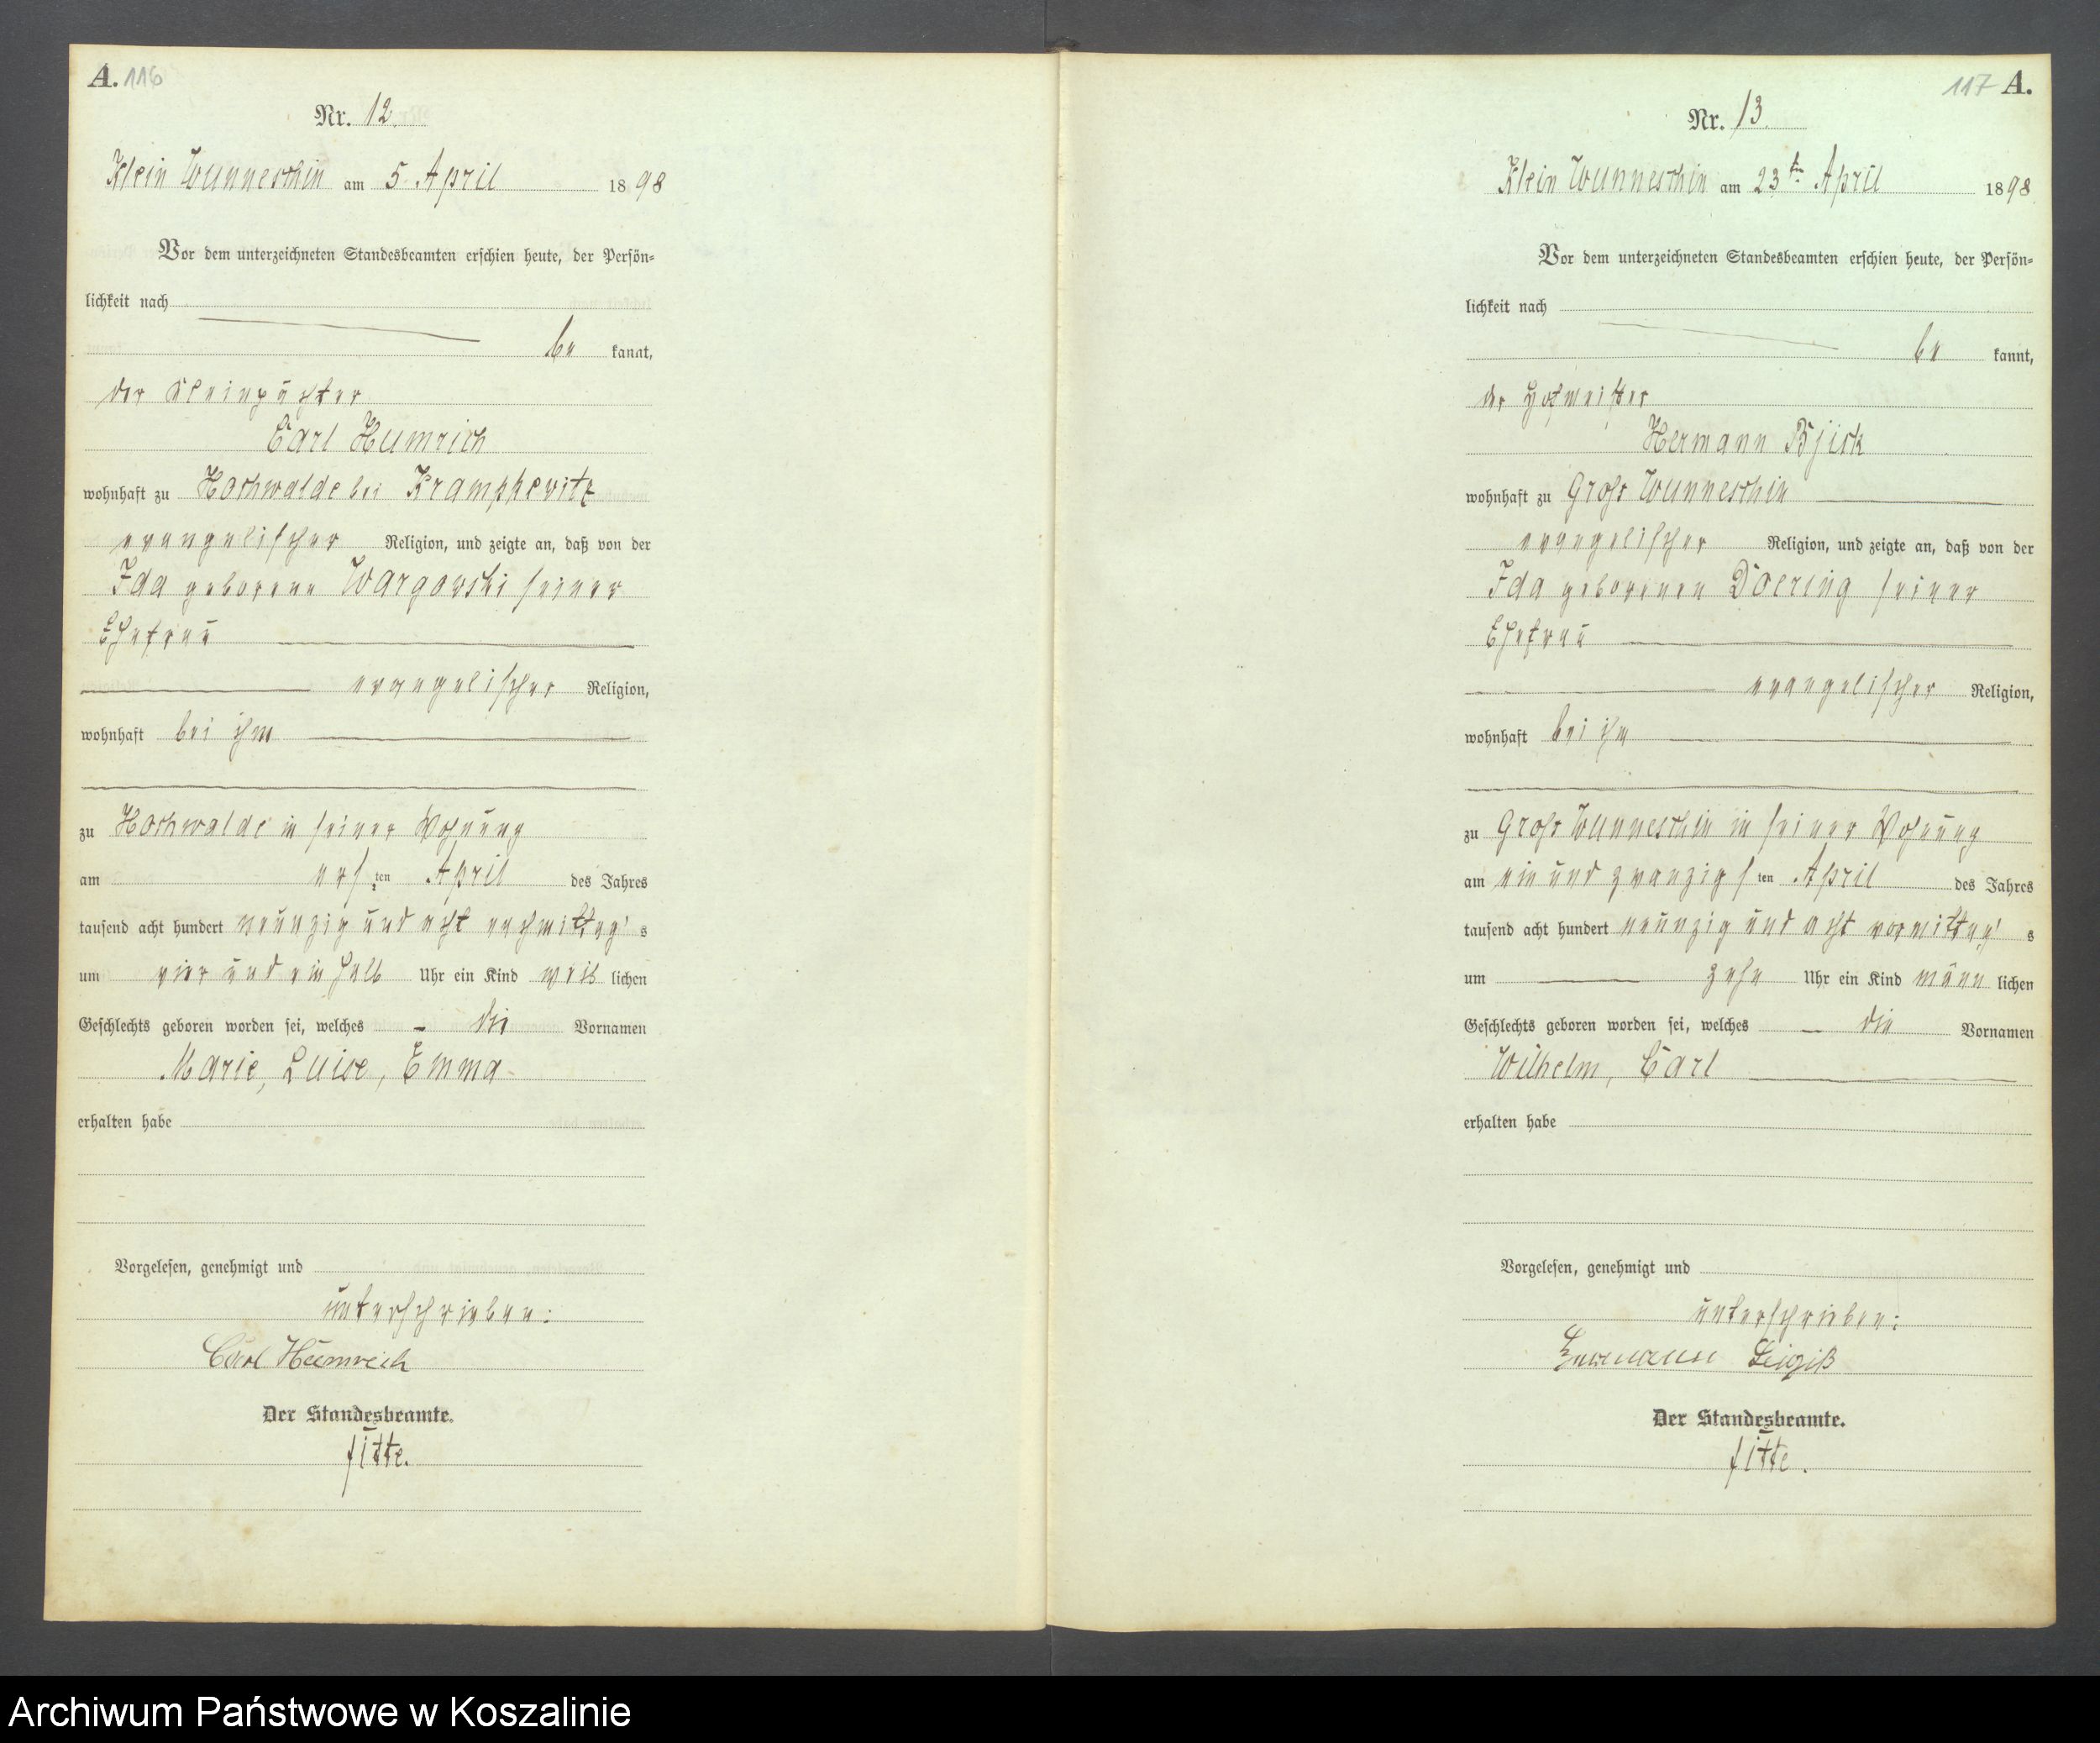 A. 116
Nr. 12.
Klein Wunneschin am 5. April 1898
Vor dem unterzeichneten Standesbeamten erschien heute, der Persön-
lichkeit nach
be kannt,
der Kleinpächter
Carl Humrich
wohnhaft zu Hochwalde bei Krampkewitz
evangelischer Religion, und zeigte an, daß von der
Ida geborene Wargowski seiner
Ehefrau
evangelischer Religion,
wohnhaft bei ihm
zu Hochwalde in seiner Wohnung
am ersten April des Jahres
tausend acht hundert neunzig und acht nachmittags
um vier und ein halb Uhr ein Kind weiblichen
Geschlechts geboren worden sei, welches die Vornamen
Marie, Luise, Emma
erhalten habe
Vorgelesen, genehmigt und
unterschrieben:
Carl Humrich
Der Standesbeamte.
Fitte.
117 A.
Nr. 13.
Klein Wunneschin am 23ten April 1898.
Vor dem unterzeichneten Standesbeamten erschien heute, der Persön-
lichkeit nach
be kannt,
der Hofmeister
Hermann
wohnhaft zu Groß Wunneschin
evangelischer Religion, und zeigte an, daß von der
Ida geborenen Doering seiner
Ehefrau
evangelischer Religion,
wohnhaft bei ihm
zu Groß Wunneschin in seiner Wohnung
am ein und zwanzigsten April des Jahres
tausend acht hundert neunzig und acht vormittags
um zehn Uhr ein Kind männlichen
Geschlechts geboren worden sei, welches die Vornamen
Wilhelm, Carl
erhalten habe
Vorgelesen, genehmigt und
unterschrieben:
Hermann
Der Standesbeamte.
Fitte.
Archiwum Państwowe w Koszalinie